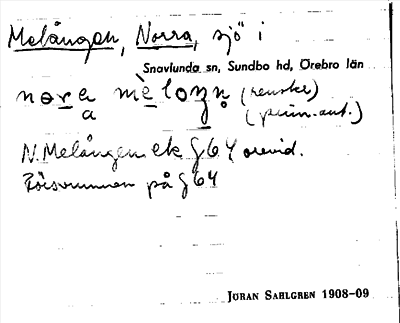 Melången, Norra, sjö i
Snavlunda sn, Sundbo hd, Örebro län
nora mèlozn (renske)
a (prim.-ant.)
N. Melången ek G 64 orevid.
Försvunnen på G 64
JÖRAN SAHLGREN 1908–09